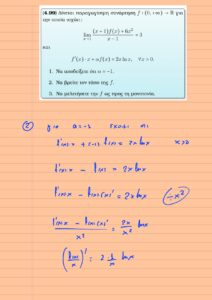 (4.99) Δίνεται παραγωγίσιμη συνάρτηση f : (0, +∞) → ℝ για
την οποία ισχύει:
lim x→1 ((x+1)f(x) + 6x²)/(x − 1) = 3
και
f'(x) · x + αf(x) = 2x ln x, ∀x > 0.
1. Να αποδείξετε ότι α = −1.
2. Να βρείτε τον τύπο της f.
3. Να μελετήσετε την f ως προς τη μονοτονία.
② για α=-1 έχουμε ότι
f'(x)x + (-1)f(x) = 2x lnx x>0
f'(x)x - f(x) = 2x lnx
f'(x)x - f(x)(x)' = 2x lnx (÷x²)
(f'(x)x - f(x)(x)')/x² = 2x/x² lnx
(f(x)/x)' = 2 1/x lnx